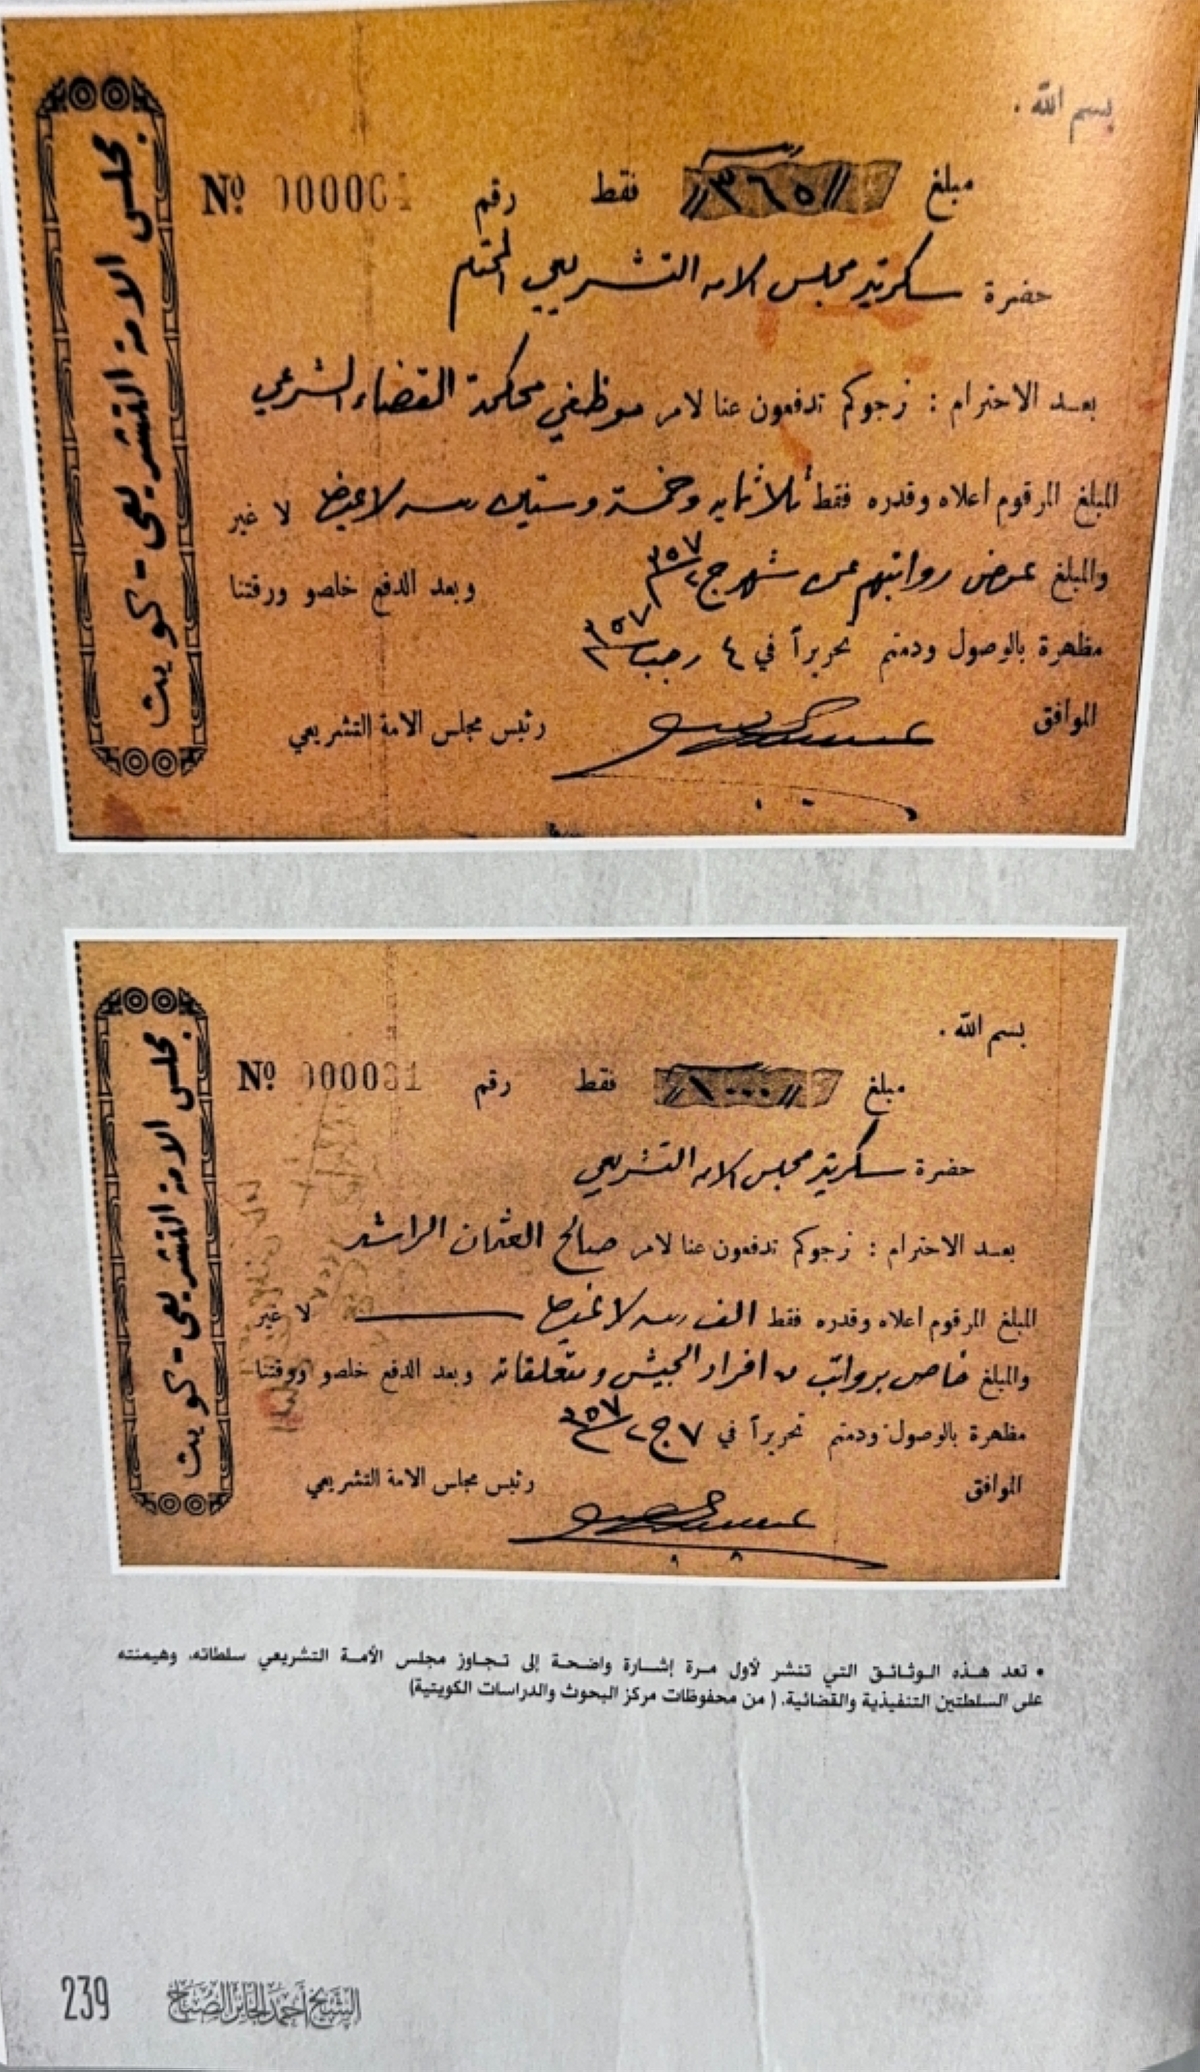 مجلس الامة التشريعي - كويت
بسم الله .
مبلغ //٣٦٥// فقط رقم Nº 000064
حضرة سكرتير مجلس الامه التشريعي المحترم
بعد الاحترام : نرجوكم تدفعون عنا لامر موظفي محكمة القضاء الشرعي
المبلغ المرقوم اعلاه وقدره فقط ثلاثمايه وخمسة وستين ربيه لا غيرها لا غير
والمبلغ عوض رواتبهم عن شهر ج٢ ٣٥٧ وبعد الدفع خلصو ورقتنا
مظهرة بالوصول ودمتم تحريراً في ٤ رجب ٣٥٧
الموافق رئيس مجلس الامة التشريعي
مجلس الامة التشريعي - كويت
بسم الله .
مبلغ //١٠٠٠// فقط رقم Nº 000031
حضرة سكرتير مجلس الامه التشريعي
بعد الاحترام : نرجوكم تدفعون عنا لامر صالح العثمان الراشد
المبلغ المرقوم اعلاه وقدره فقط الف ربيه لا غيرها لا غير
والمبلغ خاص برواتب افراد الجيش ومتعلقاته وبعد الدفع خلصو ورقتنا
مظهرة بالوصول ودمتم تحريراً في ٧ ج٢ ٣٥٧
الموافق رئيس مجلس الامة التشريعي
• تعد هذه الوثائق التي تنشر لأول مرة إشارة واضحة إلى تجاوز مجلس الأمة التشريعي سلطاته، وهيمنته
على السلطتين التنفيذية والقضائية. ( من محفوظات مركز البحوث والدراسات الكويتية)
الشيخ أحمد الجابر الصباح 239